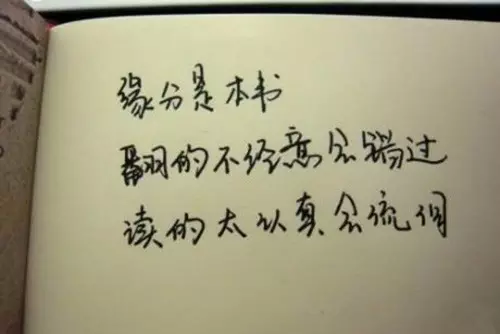 缘分是本书
翻的不经意会错过
读的太认真会流泪